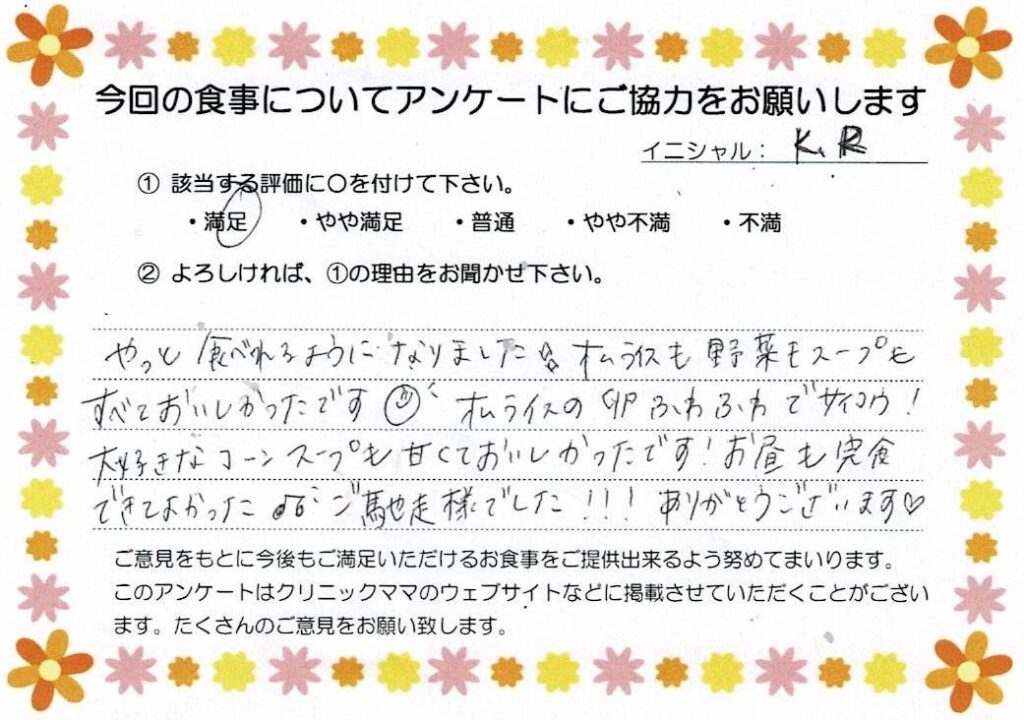 今回の食事についてアンケートにご協力をお願いします
イニシャル： K.R
① 該当する評価に〇を付けて下さい。
・満足 ・やや満足 ・普通 ・やや不満 ・不満
② よろしければ、①の理由をお聞かせ下さい。
やっと食べれるようになりました☆ オムライスも野菜もスープも
すべておいしかったです オムライスの卵ふわふわでサイコウ!
大好きなコーンスープも甘くておいしかったです!お昼も完食
できてよかった ご馳走様でした!!! ありがとうございます♡
ご意見をもとに今後もご満足いただけるお食事をご提供出来るよう努めてまいります。
このアンケートはクリニックママのウェブサイトなどに掲載させていただくことがござい
ます。たくさんのご意見をお願い致します。